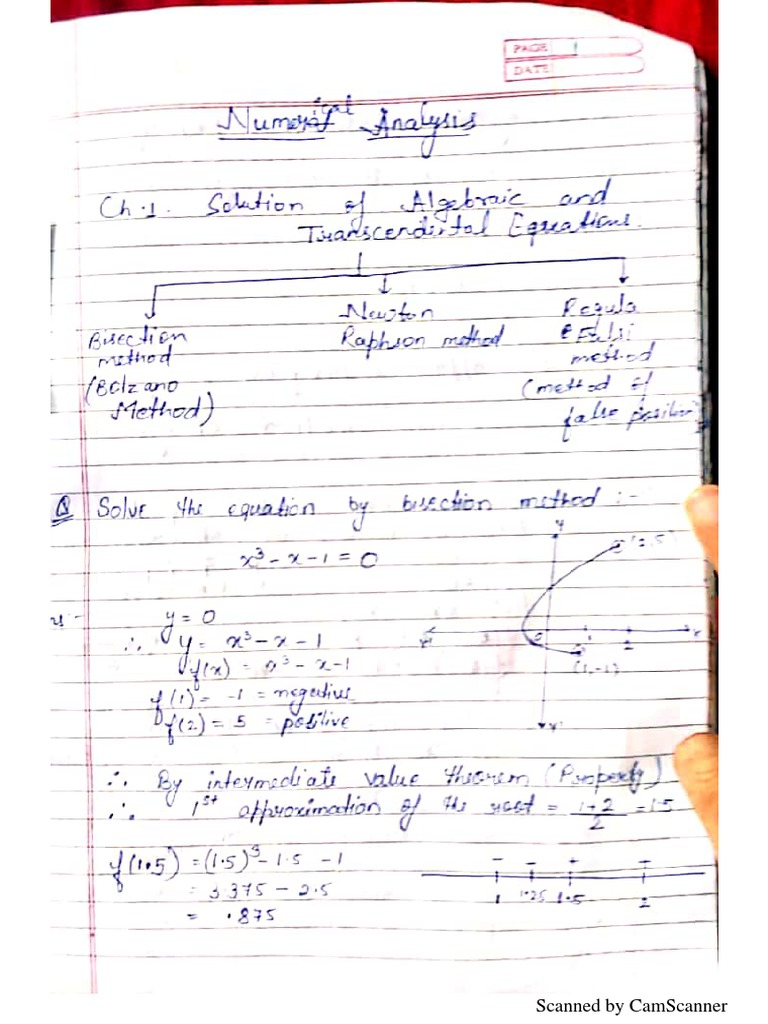 PAGE 1
DATE
Numerical Analysis
Ch.1. Solution of Algebraic and
Transcendental Equations.
Bisection
method
(Bolzano
Method)
Newton
Raphson method
Regula
Falsi
method
(method of
false position
Q Solve the equation by bisection method :-
x³ - x - 1 = 0
y = 0
∴ y = x³ - x - 1
f(x) = x³ - x - 1
f(1) = -1 = negative
f(2) = 5 = positive
y
(2,5)
x
(1,-1)
∴ By intermediate value theorem (Property)
∴ 1st approximation of the root = 1+2/2 = 1.5
f(1.5) = (1.5)³ - 1.5 - 1
= 3.375 - 2.5
= .875
1 1.25 1.5 2
Scanned by CamScanner